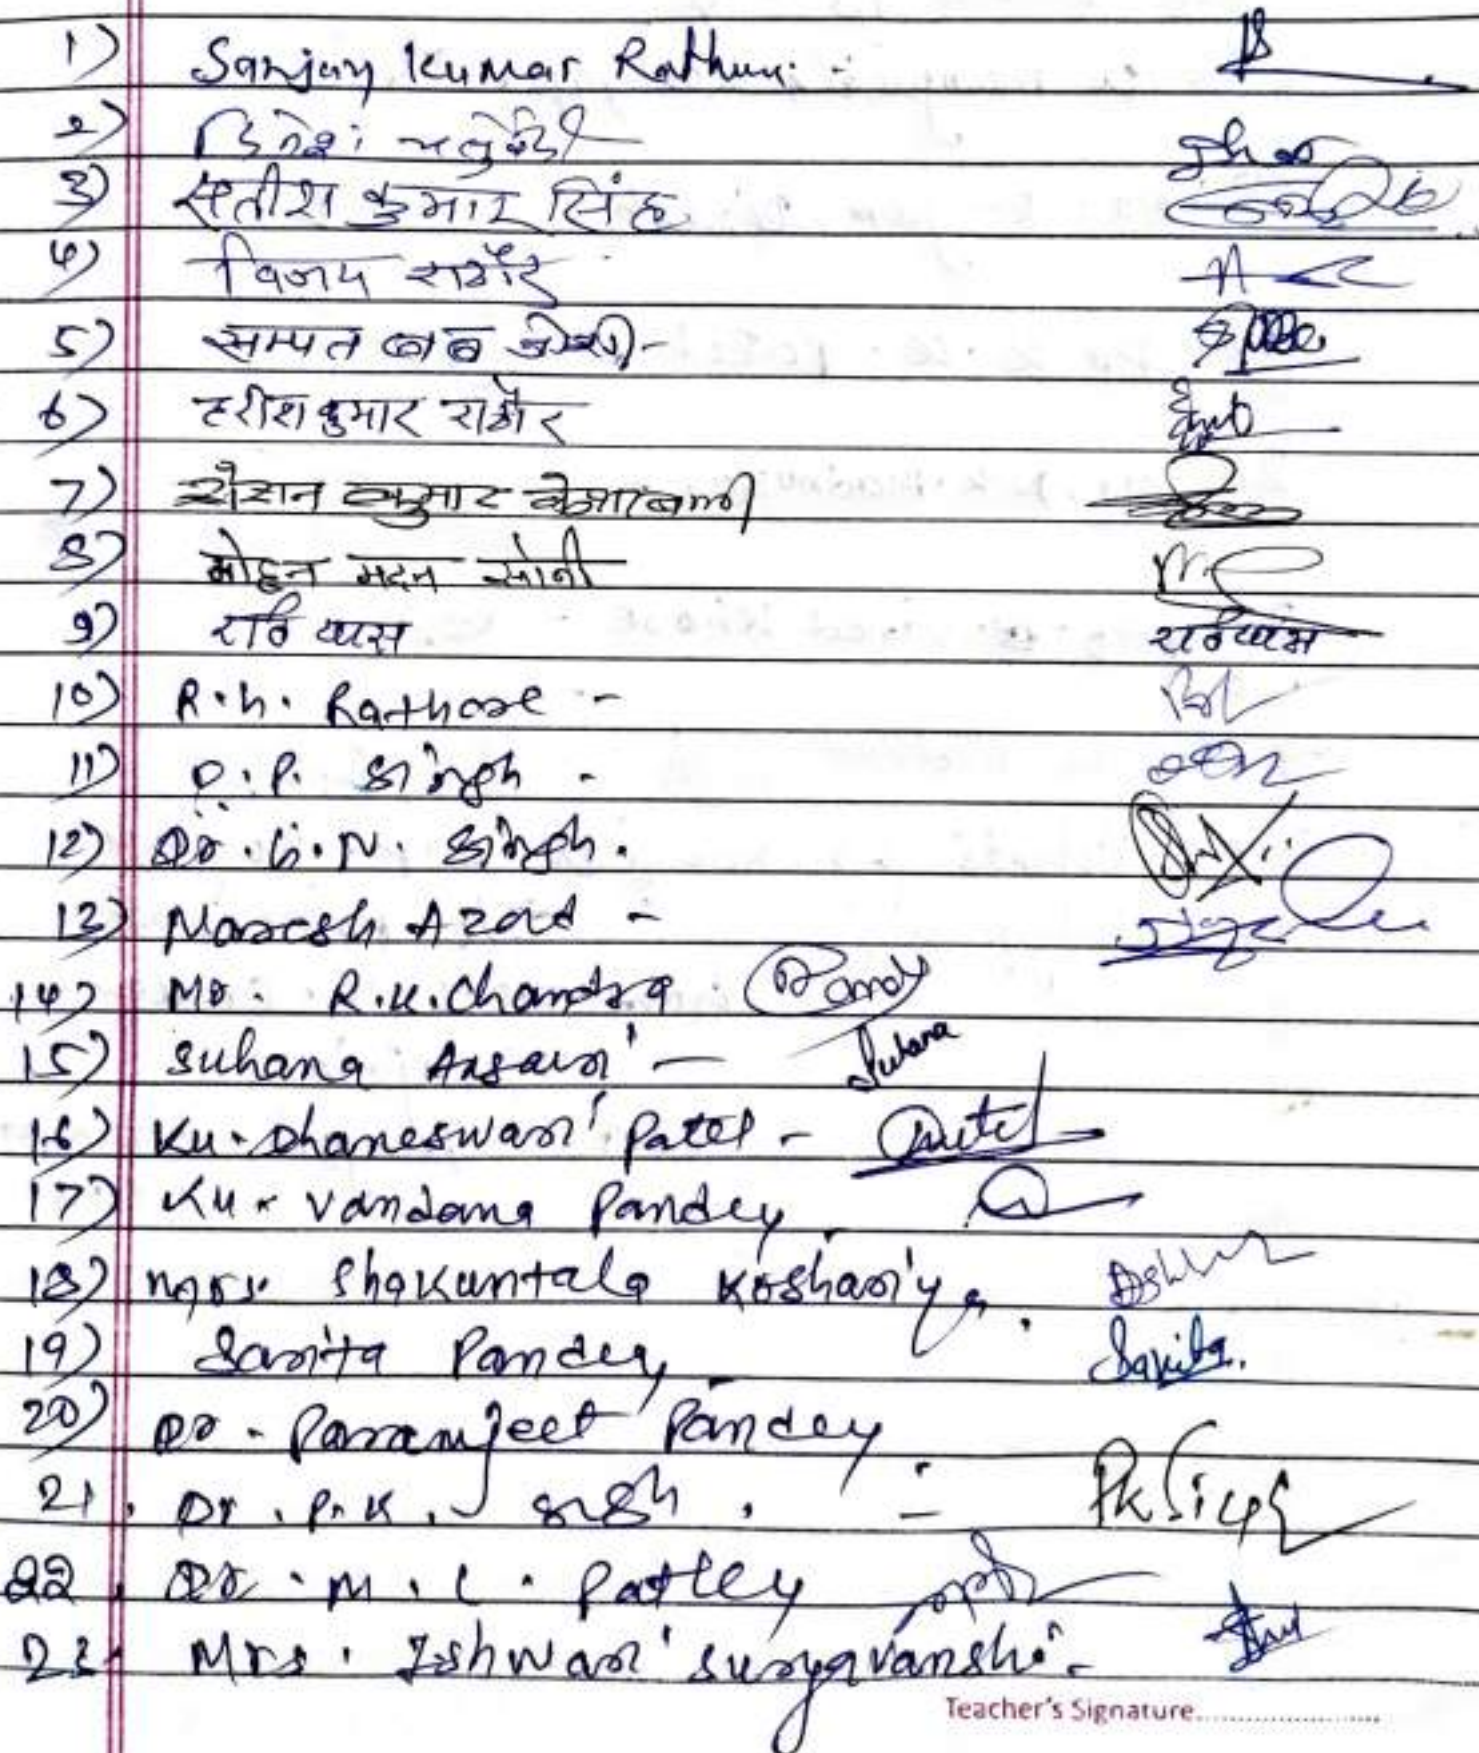 1) Sanjay Kumar Rathur
2) दिनेश चतुर्वेदी
3) सतीश कुमार सिंह
4) विजय राठौर
5) सम्पत
6) हरीश कुमार राठौर
7) रोशन कुमार केशरवानी
8) मोहन मदन सोनी
9) रवि व्यास रवि व्यास
10) R.N. Rathore -
11) O.P. Singh -
12) Dr. G.N. Singh.
13) Naresh Azad -
14) Mr. R.K. Chandra
15) Suhana Ansari - Suhana
16) Ku. Dhaneswari Patel - Patel
17) Ku. Vandana Pandey
18) Mrs. Shakuntala Koshariya.
19) Sarita Pandey Sarita.
20) Dr. Paramjeet Pandey
21. Dr. P.K. Singh. - PK Singh
22. Dr. M.L. Patley
23. Mrs. Ishwari Suryavanshi -
Teacher's Signature....................